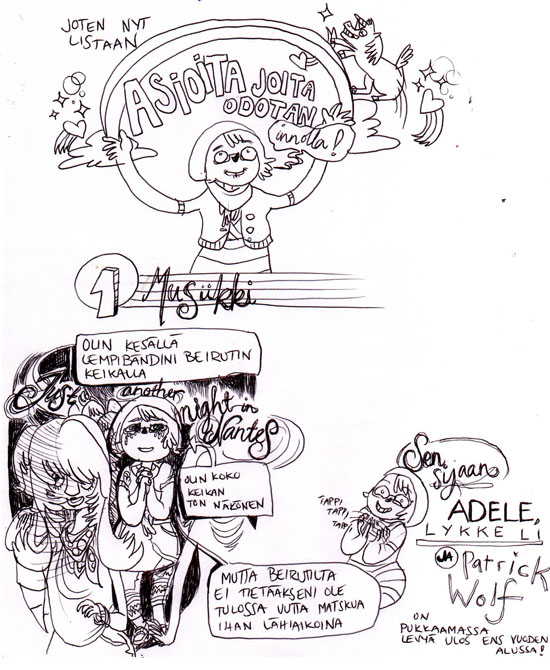 JOTEN NYT
LISTAAN
ASIOITA JOITA
ODOTAN
innolla!
1
Musiikki
OLIN KESÄLLÄ
LEMPIBÄNDINI BEIRUTIN
KEIKALLA
Just
another
night in
Nantes
OLIN KOKO
KEIKAN
TON NÄKÖNEN
MUTTA BEIRUTILTA
EI TIETÄÄKSENI OLE
TULOSSA UUTTA MATSKUA
IHAN LÄHIAIKOINA
Sen
sijaan
TAPPI
TAPPI,
TAPPI
ADELE,
LYKKE LI
JA Patrick
Wolf
ON
PUKKAAMASSA
LEVYÄ ULOS ENS VUODEN
ALUSSA!